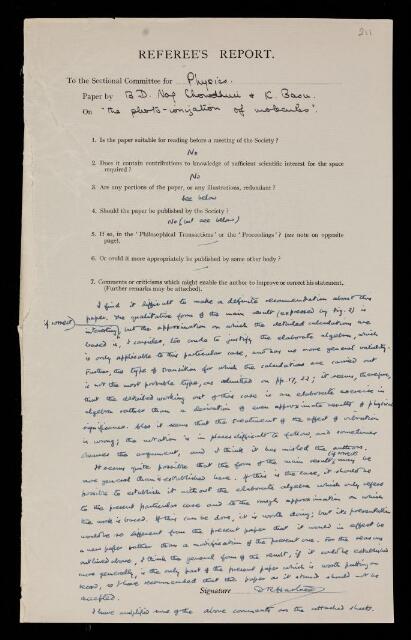 211
REFEREE'S REPORT.
To the Sectional Committee for Physics.
Paper by B. D. Nag Chowdhuri & K. Basu.
On "the photo-ionization of molecules".
1. Is the paper suitable for reading before a meeting of the Society ?
No
2. Does it contain contributions to knowledge of sufficient scientific interest for the space
required ?
No
3. Are any portions of the paper, or any illustrations, redundant ?
See below
4. Should the paper be published by the Society ?
No (but see below)
5. If so, in the 'Philosophical Transactions' or the 'Proceedings' ? (see note on opposite
page).
6. Or could it more appropriately be published by some other body ?
7. Comments or criticisms which might enable the author to improve or correct his statement.
(Further remarks may be attached).
I find it difficult to make a definite recommendation about this
paper. The qualitative form of the main result (expressed by fig. 2) is
if correct
interesting, but the approximation on which the detailed calculations are
based is, I consider, too crude to justify the elaborate algebra, which
is only applicable to this particular case, and has no more general validity.
Further, the type of transition for which the calculations are carried out
is not the most probable type, as admitted on pp. 17, 22; it seems, therefore,
that the detailed working out of this case is an elaborate exercise in
algebra rather than a derivation of even approximate results of physical
significance. Also it seems that the treatment of the effect of vibration
is wrong; the notation is in places difficult to follow, and sometimes
the argument, and I think it has misled the authors.
It seems quite possible that the form of the main result, if correct, may be
more general than established here. If this is the case, it should be
possible to establish it without the elaborate algebra which only refers
to the present particular case and to the rough approximation on which
the work is based. If this can be done, it is worth doing; but its presentation
would be so different from the present paper that it would in effect be
a new paper rather than a modification of the present one. For the reasons
outlined above, I think the general form of the result, if it could be established
more generally, is the only part of the present paper which is worth putting on
record, so I have recommended that the paper as it stands should not be
accepted.
Signature D R Hartree
I have amplified some of the above comments on the attached sheets.